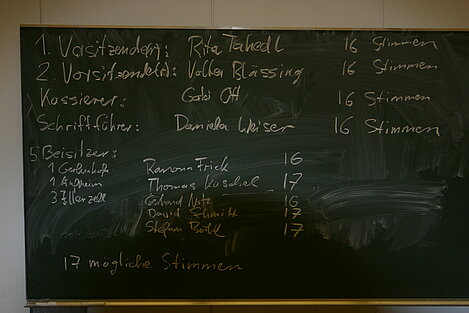 1. Vorsitzende(r): Rita Tahedl 16 Stimmen
2. Vorsitzende(r): Volker Blässing 16 Stimmen
Kassierer: Gabi Ott 16 Stimmen
Schriftführer: Daniela Weiser 16 Stimmen
5 Beisitzer:
1 Ramona Frick 16
1 Thomas 17
3 Gerhard 16
David Schmitt 17
Stefan 17
17 mögliche Stimmen